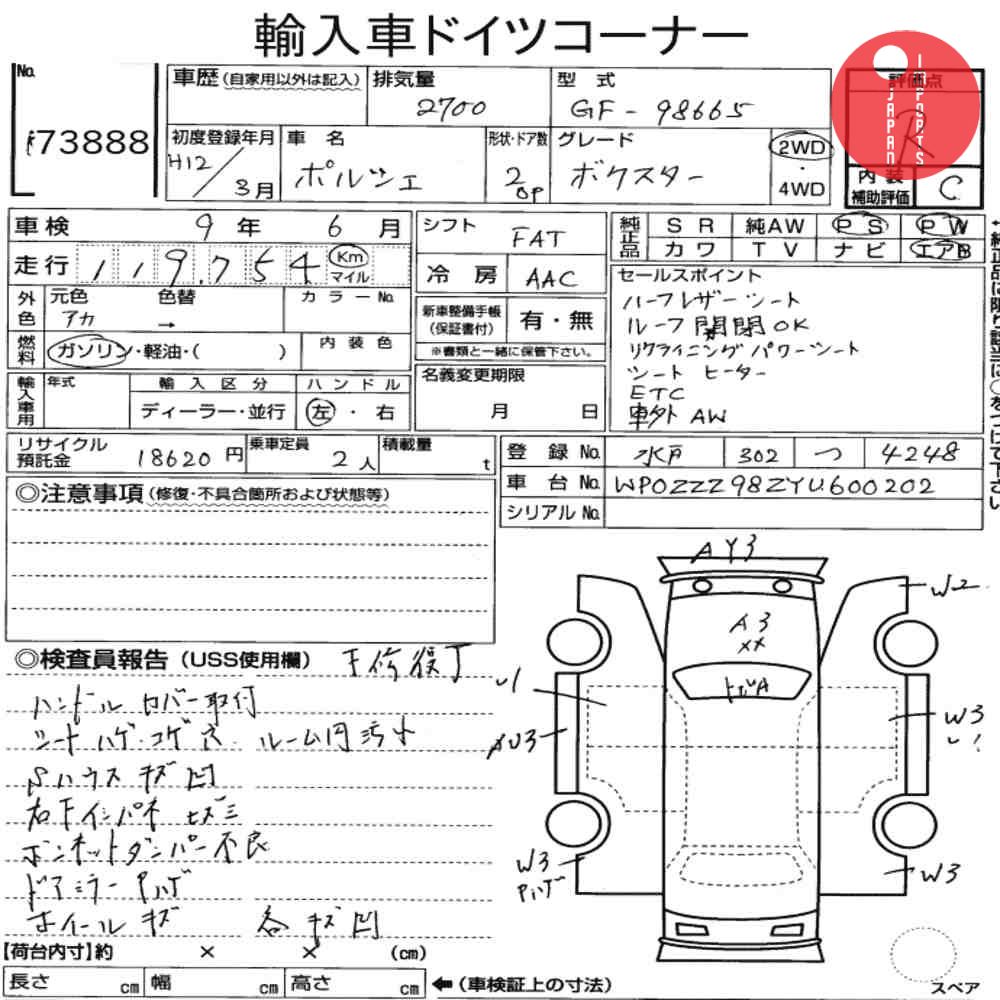 輸入車ドイツコーナー
No.
73888
車歴(自家用以外は記入)
排気量
2700
型式
GF-98665
評価点
R
JAPAN IMPORTS
初度登録年月
H12/3月
車名
ポルシェ
形状・ドア数
2 OP
グレード
ボクスター
2WD
・
4WD
内装
補助評価
C
車検 9年 6月
シフト FAT
純正品
SR 純AW PS PW
カワ TV ナビ エアB
走行 119,754 Km マイル
冷房 AAC
セールスポイント
ハーフレザーシート
ルーフ開閉OK
リクライニングパワーシート
シートヒーター
ETC
車外AW
外色 元色 色替 カラーNo.
アカ →
新車整備手帳
(保証書付)
有・無
※書類と一緒に保管下さい。
燃料 ガソリン・軽油・( ) 内装色
名義変更期限
月 日
輸入車用 年式 輸入区分 ハンドル
ディーラー・並行 左・右
リサイクル
預託金 18620円
乗車定員 2人
積載量 t
登録No. 水戸 302 つ 4248
車台No. WP0ZZZ98ZYU600202
シリアルNo.
←純正品に限り該当に○をつけて下さい
◎注意事項(修復・不具合箇所および状態等)
◎検査員報告(USS使用欄) 下修復丁
ハンドルカバー取付
シートハゲ・コゲ穴 ルーム内汚れ
Sハウスキズ凹
右下インパネ
ボンネットダンパー不良
ドアミラーPハゲ
ホイールキズ 各キズ凹
AY3
A3
XX
トビA
W2
U1
U3
W3
W3
Pハゲ
W3
【荷台内寸】約 × × (cm)
長さ cm 幅 cm 高さ cm ←(車検証上の寸法)
スペア